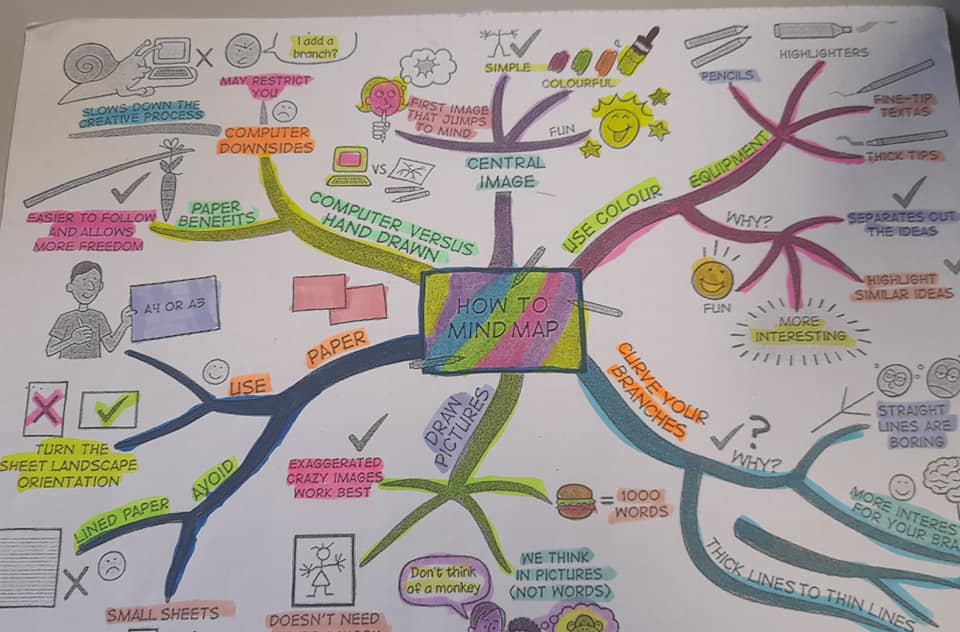 HOW TO
MIND MAP
CENTRAL
IMAGE
FIRST IMAGE
THAT JUMPS
TO MIND
SIMPLE
COLOURFUL
FUN
USE COLOUR
EQUIPMENT
PENCILS
HIGHLIGHTERS
FINE-TIP
TEXTAS
THICK TIPS
WHY?
SEPARATES OUT
THE IDEAS
HIGHLIGHT
SIMILAR IDEAS
MORE
INTERESTING
FUN
CURVE YOUR
BRANCHES
?
WHY?
STRAIGHT
LINES ARE
BORING
MORE
FOR YOUR
THICK LINES TO THIN LINES
DRAW
PICTURES
= 1000
WORDS
WE THINK
IN PICTURES
(NOT WORDS)
Don't think
of a monkey
DOESN'T NEED
EXAGGERATED
CRAZY IMAGES
WORK BEST
PAPER
USE
A4 OR A3
TURN THE
SHEET LANDSCAPE
ORIENTATION
AVOID
LINED PAPER
SMALL SHEETS
COMPUTER VERSUS
HAND DRAWN
VS
PAPER
BENEFITS
EASIER TO FOLLOW
AND ALLOWS
MORE FREEDOM
COMPUTER
DOWNSIDES
SLOWS DOWN THE
CREATIVE PROCESS
MAY RESTRICT
YOU
I add a
branch?